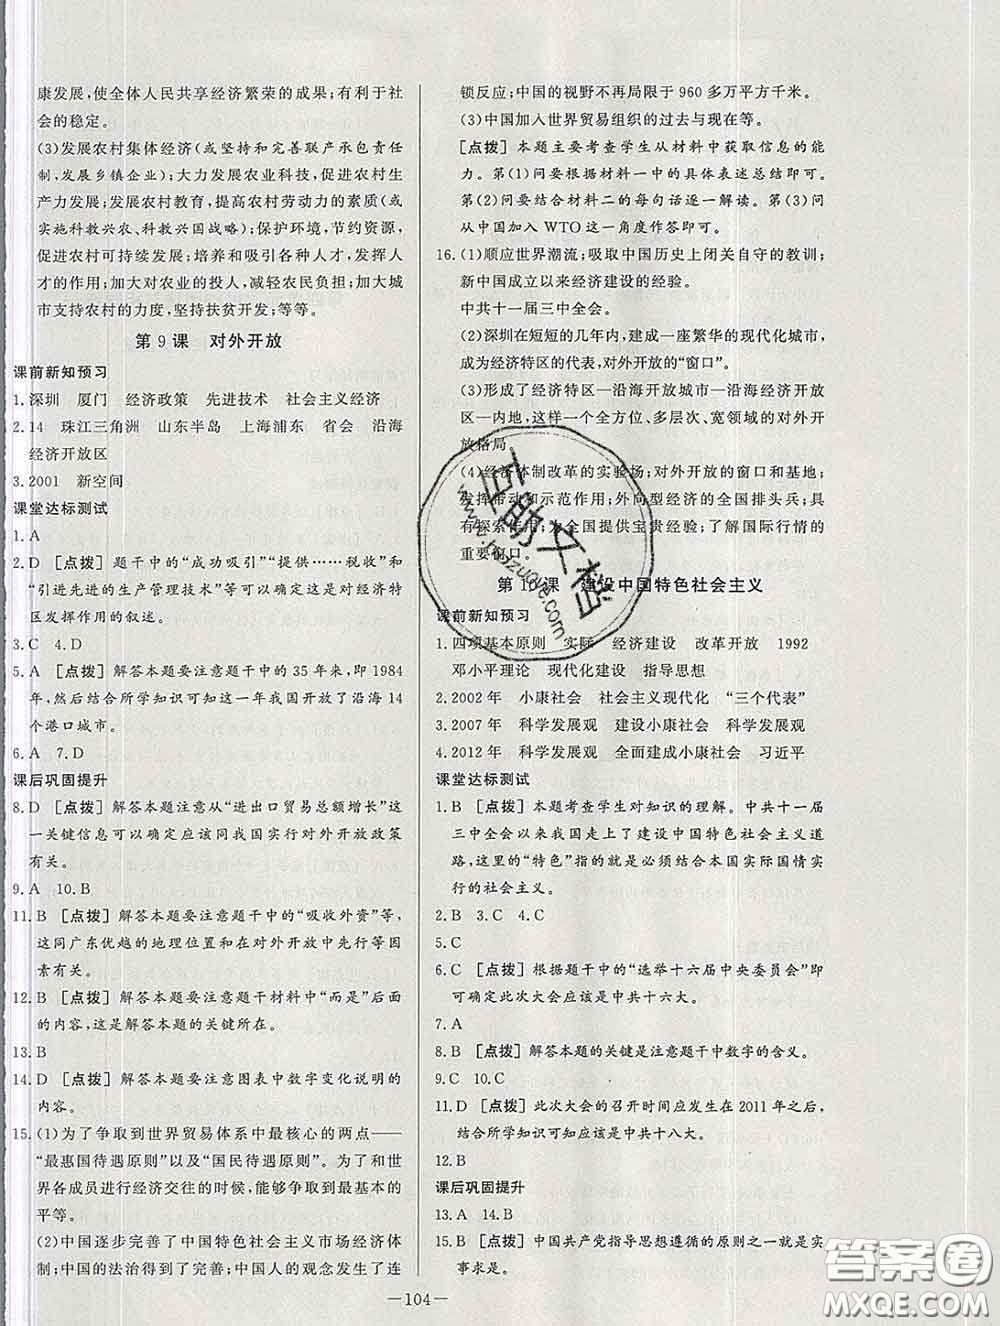 康发展,使全体人民共享经济繁荣的成果;有利于社
会的稳定。
(3)发展农村集体经济(或坚持和完善联产承包制,
发展乡镇企业);大力发展农业科技,促进农村生产
力发展;发展农村教育,提高农村劳动力的素质(或
实施科教兴农、科教兴国战略);保护环境,节约资源,
促进农村可持续发展;培养和吸引各方人才,发挥人
才的作用;加大对农业的投人,减轻农民负担;加大城
市支持农村的力度,坚持扶贫开发;等等。
第9课 对外开放
课前新知预习
1.深圳 厦门 经济政策 先进技术 社会主义经济
2.14 珠江三角洲 山东半岛 上海浦东 省会 沿海
经济开放区
3.2001 新空间
课堂达标测试
1.A
2.D [点拨]题干中的“成功吸引”“提供……税收”和
“引进先进的生产管理技术”等可以体现出对经济特
区发挥作用的叙述。
3.C 4.D
5.A [点拨]解答本题要注意题干中的35年来,即1984
年,然后结合所学知识可知这一年我国开放了沿海14
个港口城市。
6.A 7.D
课后巩固提升
8.D [点拨]解答本题注意从“进出口贸易总额增长”这
一关键信息可以确定应该同我国实行对外开放政策
有关。
9.A 10.B
11.B [点拨]解答本题要注意题干中的“吸收外资”等,
这同广东优越的地理位置和在对外开放中先行等因
素有关。
12.B [点拨]解答本题要注意题干材料中“而是”后面
的内容,这是解答本题的关键所在。
13.B
14.D [点拨]解答本题要注意图表中数字变化说明的
内容。
15.(1)为了争取到世界贸易体系中最核心的两点——
“最惠国待遇原则”以及“国民待遇原则”。为了和世
界各成员进行经济交往的时候,能够争取到最基本的
平等。
(2)中国逐步完善了中国特色社会主义市场经济体
制;中国的法治得到了完善;中国人的观念发生了连
锁反应;中国的视野不再局限于960多万平方千米。
(3)中国加入世界贸易组织的过去与现在等。
[点拨]本题主要考查学生从材料中获取信息的能
力。第(1)问要根据材料一中的具体表述总结即可。
第(2)问要结合材料二的每句话逐一解读。第(3)问
从中国加入WTO这一角度作答即可。
16.(1)顺应世界潮流;吸取中国历史上闭关自守的教训;
新中国成立以来经济建设的经验。
中共十一届三中全会。
(2)深圳在短短的几年内,建成一座繁华的现代化城市,
成为经济特区的代表,对外开放的“窗口”。
(3)形成了经济特区—沿海开放城市—沿海经济开放
区—内地,这样一个全方位、多层次、宽领域的对外开
放格局。
(4)经济体制改革的实验场;对外开放的窗口和基地;
发挥带动和示范作用;外向型经济的全国排头兵;具
有探索作用;为全国提供宝贵经验;了解国际行情的
重要窗口。
第10课 建设中国特色社会主义
课前新知预习
1.四项基本原则 实际 经济建设 改革开放 1992
邓小平理论 现代化建设 指导思想
2.2002年 小康社会 社会主义现代化 “三个代表”
3.2007年 科学发展观 建设小康社会 科学发展观
4.2012年 科学发展观 全面建成小康社会 习近平
课堂达标测试
1.B [点拨]本题考查学生对知识的理解。中共十一届
三中全会以来我国走上了建设中国特色社会主义道
路,这里的“特色”指的就是必须结合本国实际国情实
行的社会主义。
2.B 3.C 4.C
5.C
6.C [点拨]根据题干中的“选举十六届中央委员会”即
可确定此次大会应该是中共十六大。
7.A
8.B [点拨]解答本题的关键是注意题干中数字的含义。
9.C 10.C
11.D [点拨]此次大会的召开时间应发生在2011年之后,
结合所学知识可知应该是中共十八大。
12.B
课后巩固提升
13.A 14.B
15.B [点拨]中国共产党指导思想遵循的原则之一就是实
事求是。
—104—
互助文档
www.huzuwe.com
答案圈
MXQE.COM